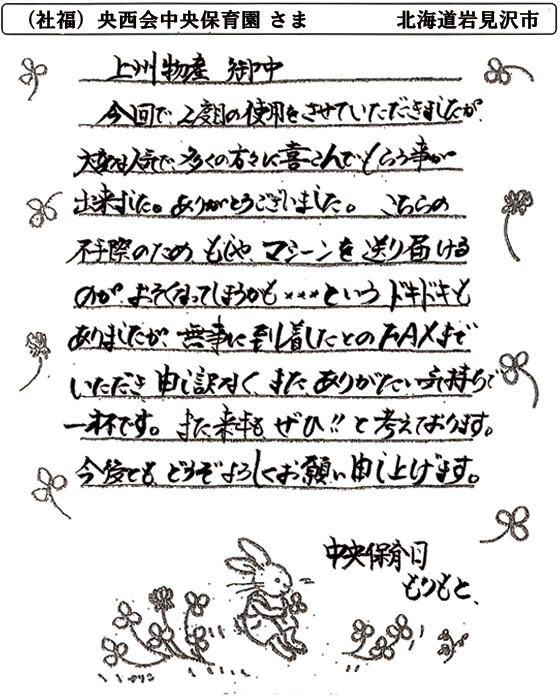 （社福）央西会中央保育園 さま 北海道岩見沢市
上州物産 御中
今回で、2度目の使用をさせていただきましたが、
大変な人気で、多くの方々に喜こんでもらう事が
出来ました。ありがとうございました。 こちらの
不手際のため もしや マシーンを送り届ける
のが、おそくなってしまうかも×××という ドキドキも
ありましたが、無事に到着したとのFAXまで
いただき 申し訳なく、また、ありがたい気持ちで
一杯です。また来年も ぜひ!! と考えております。
今後とも、どうぞよろしくお願い申し上げます。
中央保育園
もりもと、